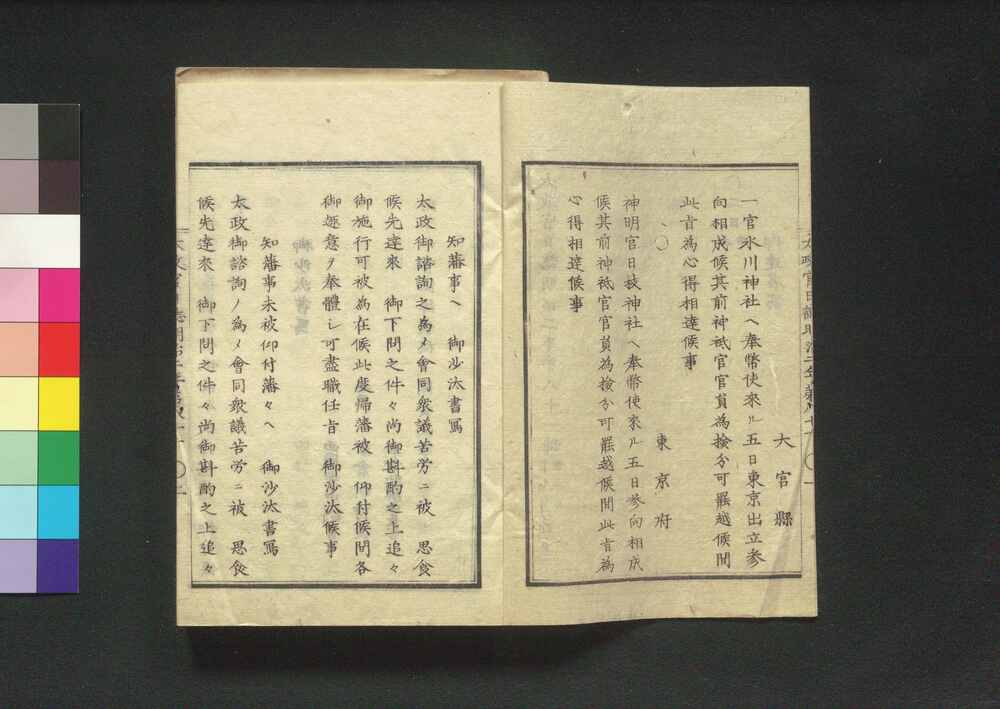 大宮縣
一官氷川神社ヘ奉幣使來ル五日東京出立參
向相成候其前神祇官官員為撿分可罷越候間
此旨為心得相達候事
〇　東京府
神明宮日枝神社ヘ奉幣使來ル五日參向相成
候其前神祇官官員為撿分可罷越候間此旨為
心得相達候事
知藩事ヘ　御沙汰書寫
太政御諮詢之為メ會同衆議苦労ニ被　思食
候先達來　御下問之件々尚御斟酌之上追々
御施行可被為在候此度歸藩被　仰付候間各
御趣意ヲ奉體シ可盡職任旨御沙汰候事
知藩事未被仰付藩々ヘ　御沙汰書寫
太政御諮詢ノ為メ會同衆議苦労ニ被　思食
候先達來　御下問之件々尚御斟酌之上追々